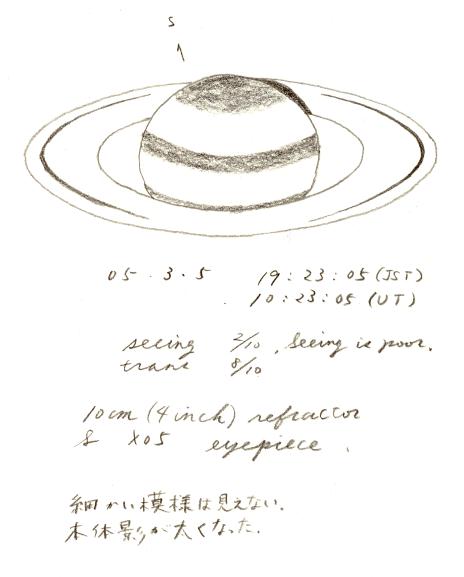 S
05.3.5 19:23:05 (JST)
10:23:05 (UT)
seeing 2/10, Seeing is poor.
trans 8/10
10cm (4 inch) refractor
& X05 eyepiece.
細かい模様は見えない。
本体影が太くなった.